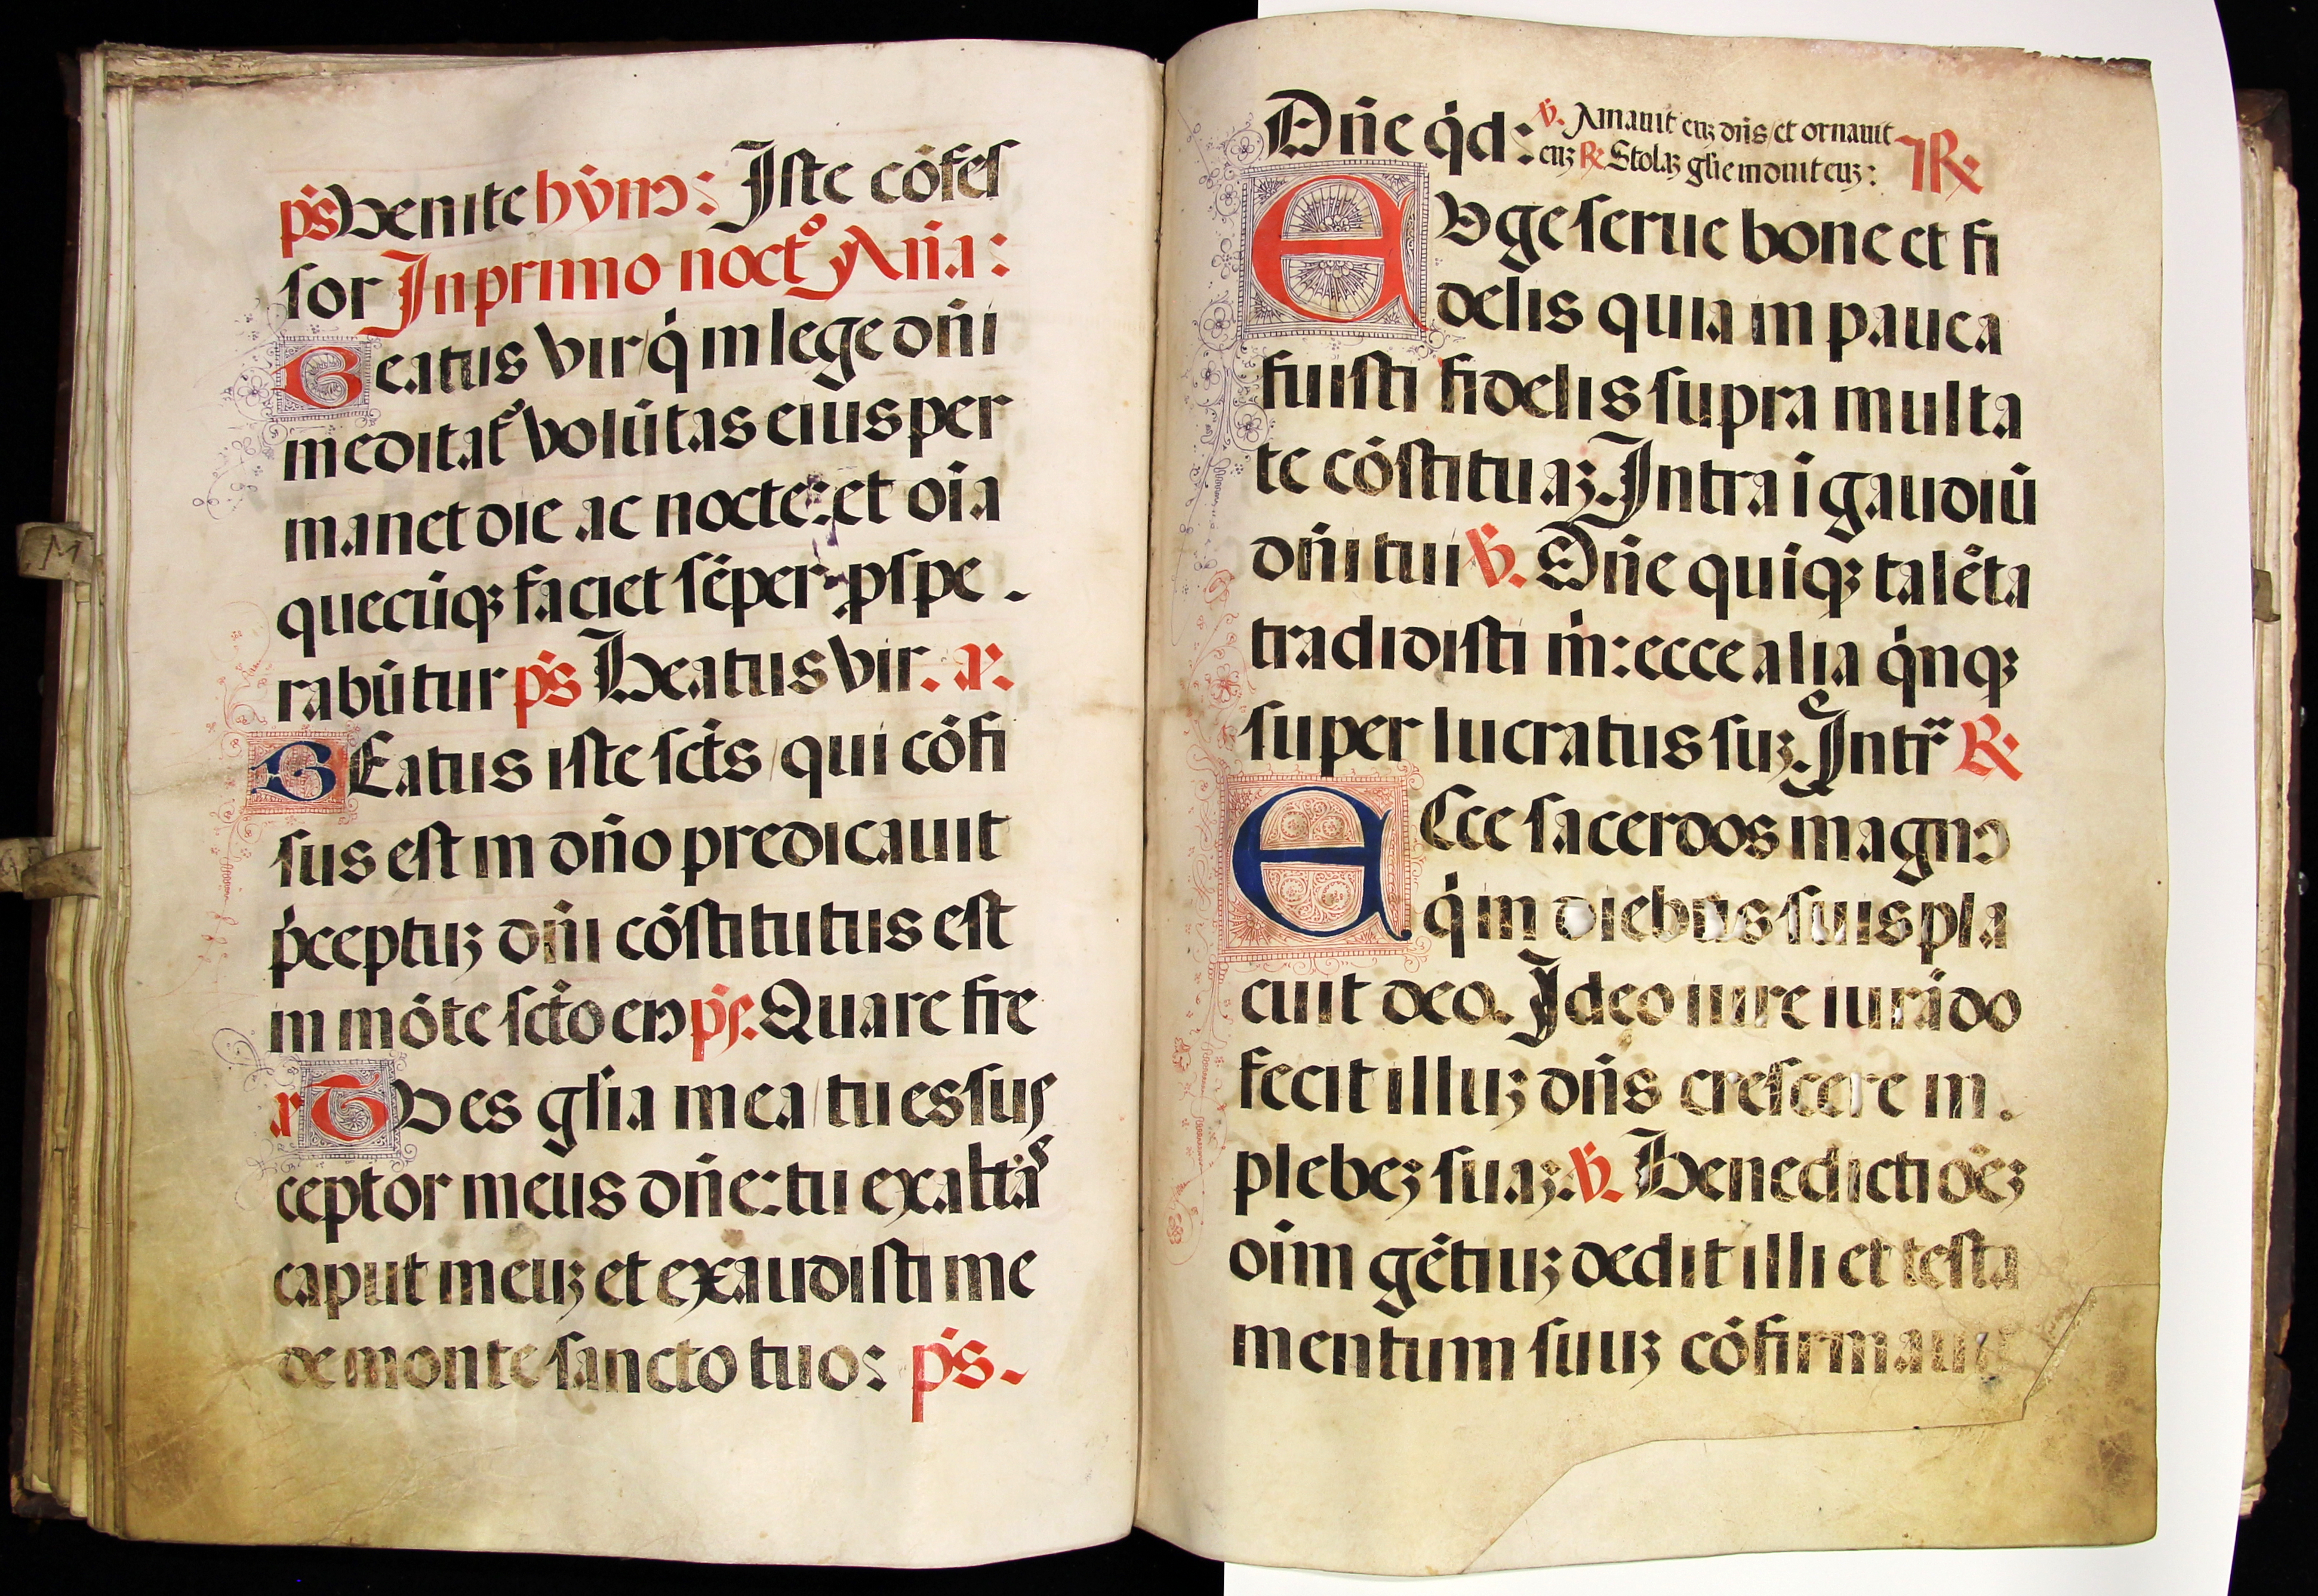 p̄s Venite hȳmꝰ: Iste cōfes
sor In primo noctº Aña:
Beatus vir / q̇ in lege dn̄i
meditat᷑ volūtas eius per
manet die ac nocte: et oīa
quecūqꝫ faciet sēper ꝓspe
rabūtur p̄s Beatus vir. a.
BEatus iste sc̄ts / qui cōfi
sus est in dn̄o predicauit
p̄ceptuꝫ dn̄i cōstitutus est
in mōte sc̄to eiꝰ p̄s. Quare fre
a TV es gl̄ia mea / tu es sus
ceptor meus dn̄e: tu exaltās
caput meuꝫ et exaudisti me
de monte sancto tuo: p̄s.
Dn̄e q̇d: v̄. Amauit euꝫ dn̄s / et ornauit
euꝫ ℞ Stolaꝫ gl̄ie induit euꝫ: ℞
EVge serue bone et fi
delis quia in pauca
fuisti fidelis supra multa
te cōstituaꝫ. Intra ī gaudiū
dn̄i tui v̄. Dn̄e quīqꝫ talēta
tradidisti m̄: ecce alia q̇nqꝫ
super lucratus suꝫ. Intr̄ ℞
ECce sacerdos magnꝰ
q̇ in diebus suis pla
cuit deo. Ideo iure iurādo
fecit illuꝫ dn̄s crescere in
plebeꝫ suaꝫ: v̄. Benedictiōeꝫ
oīm gētiuꝫ dedit illi et testa
mentum suuꝫ cōfirmauit
M